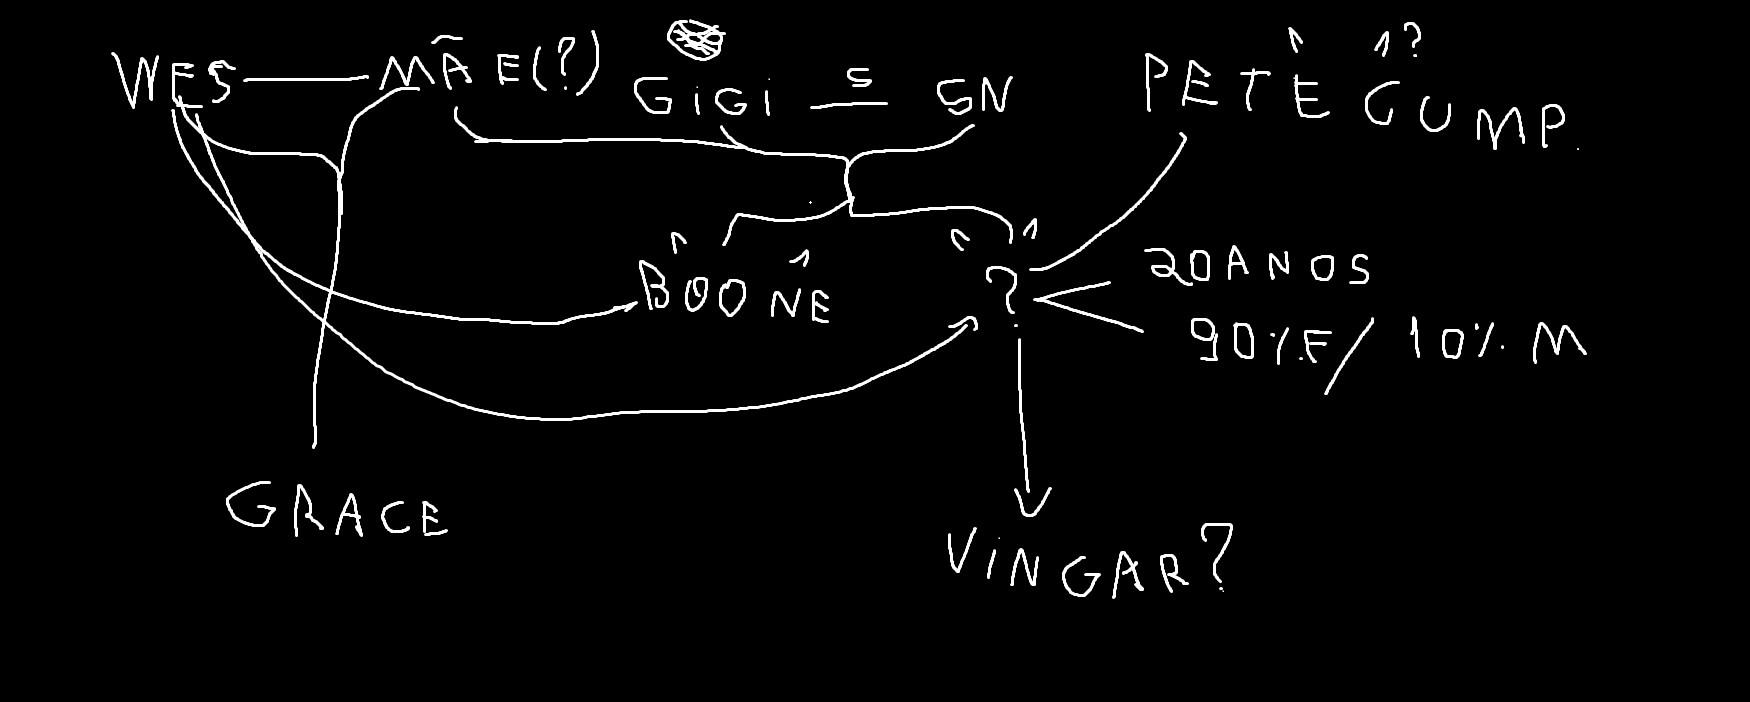 WES MÃE(?) GiGi S SN PETE CUMP. ?
BOONE ? 20 ANOS
90%F/10%M
GRACE
ViNGAR?